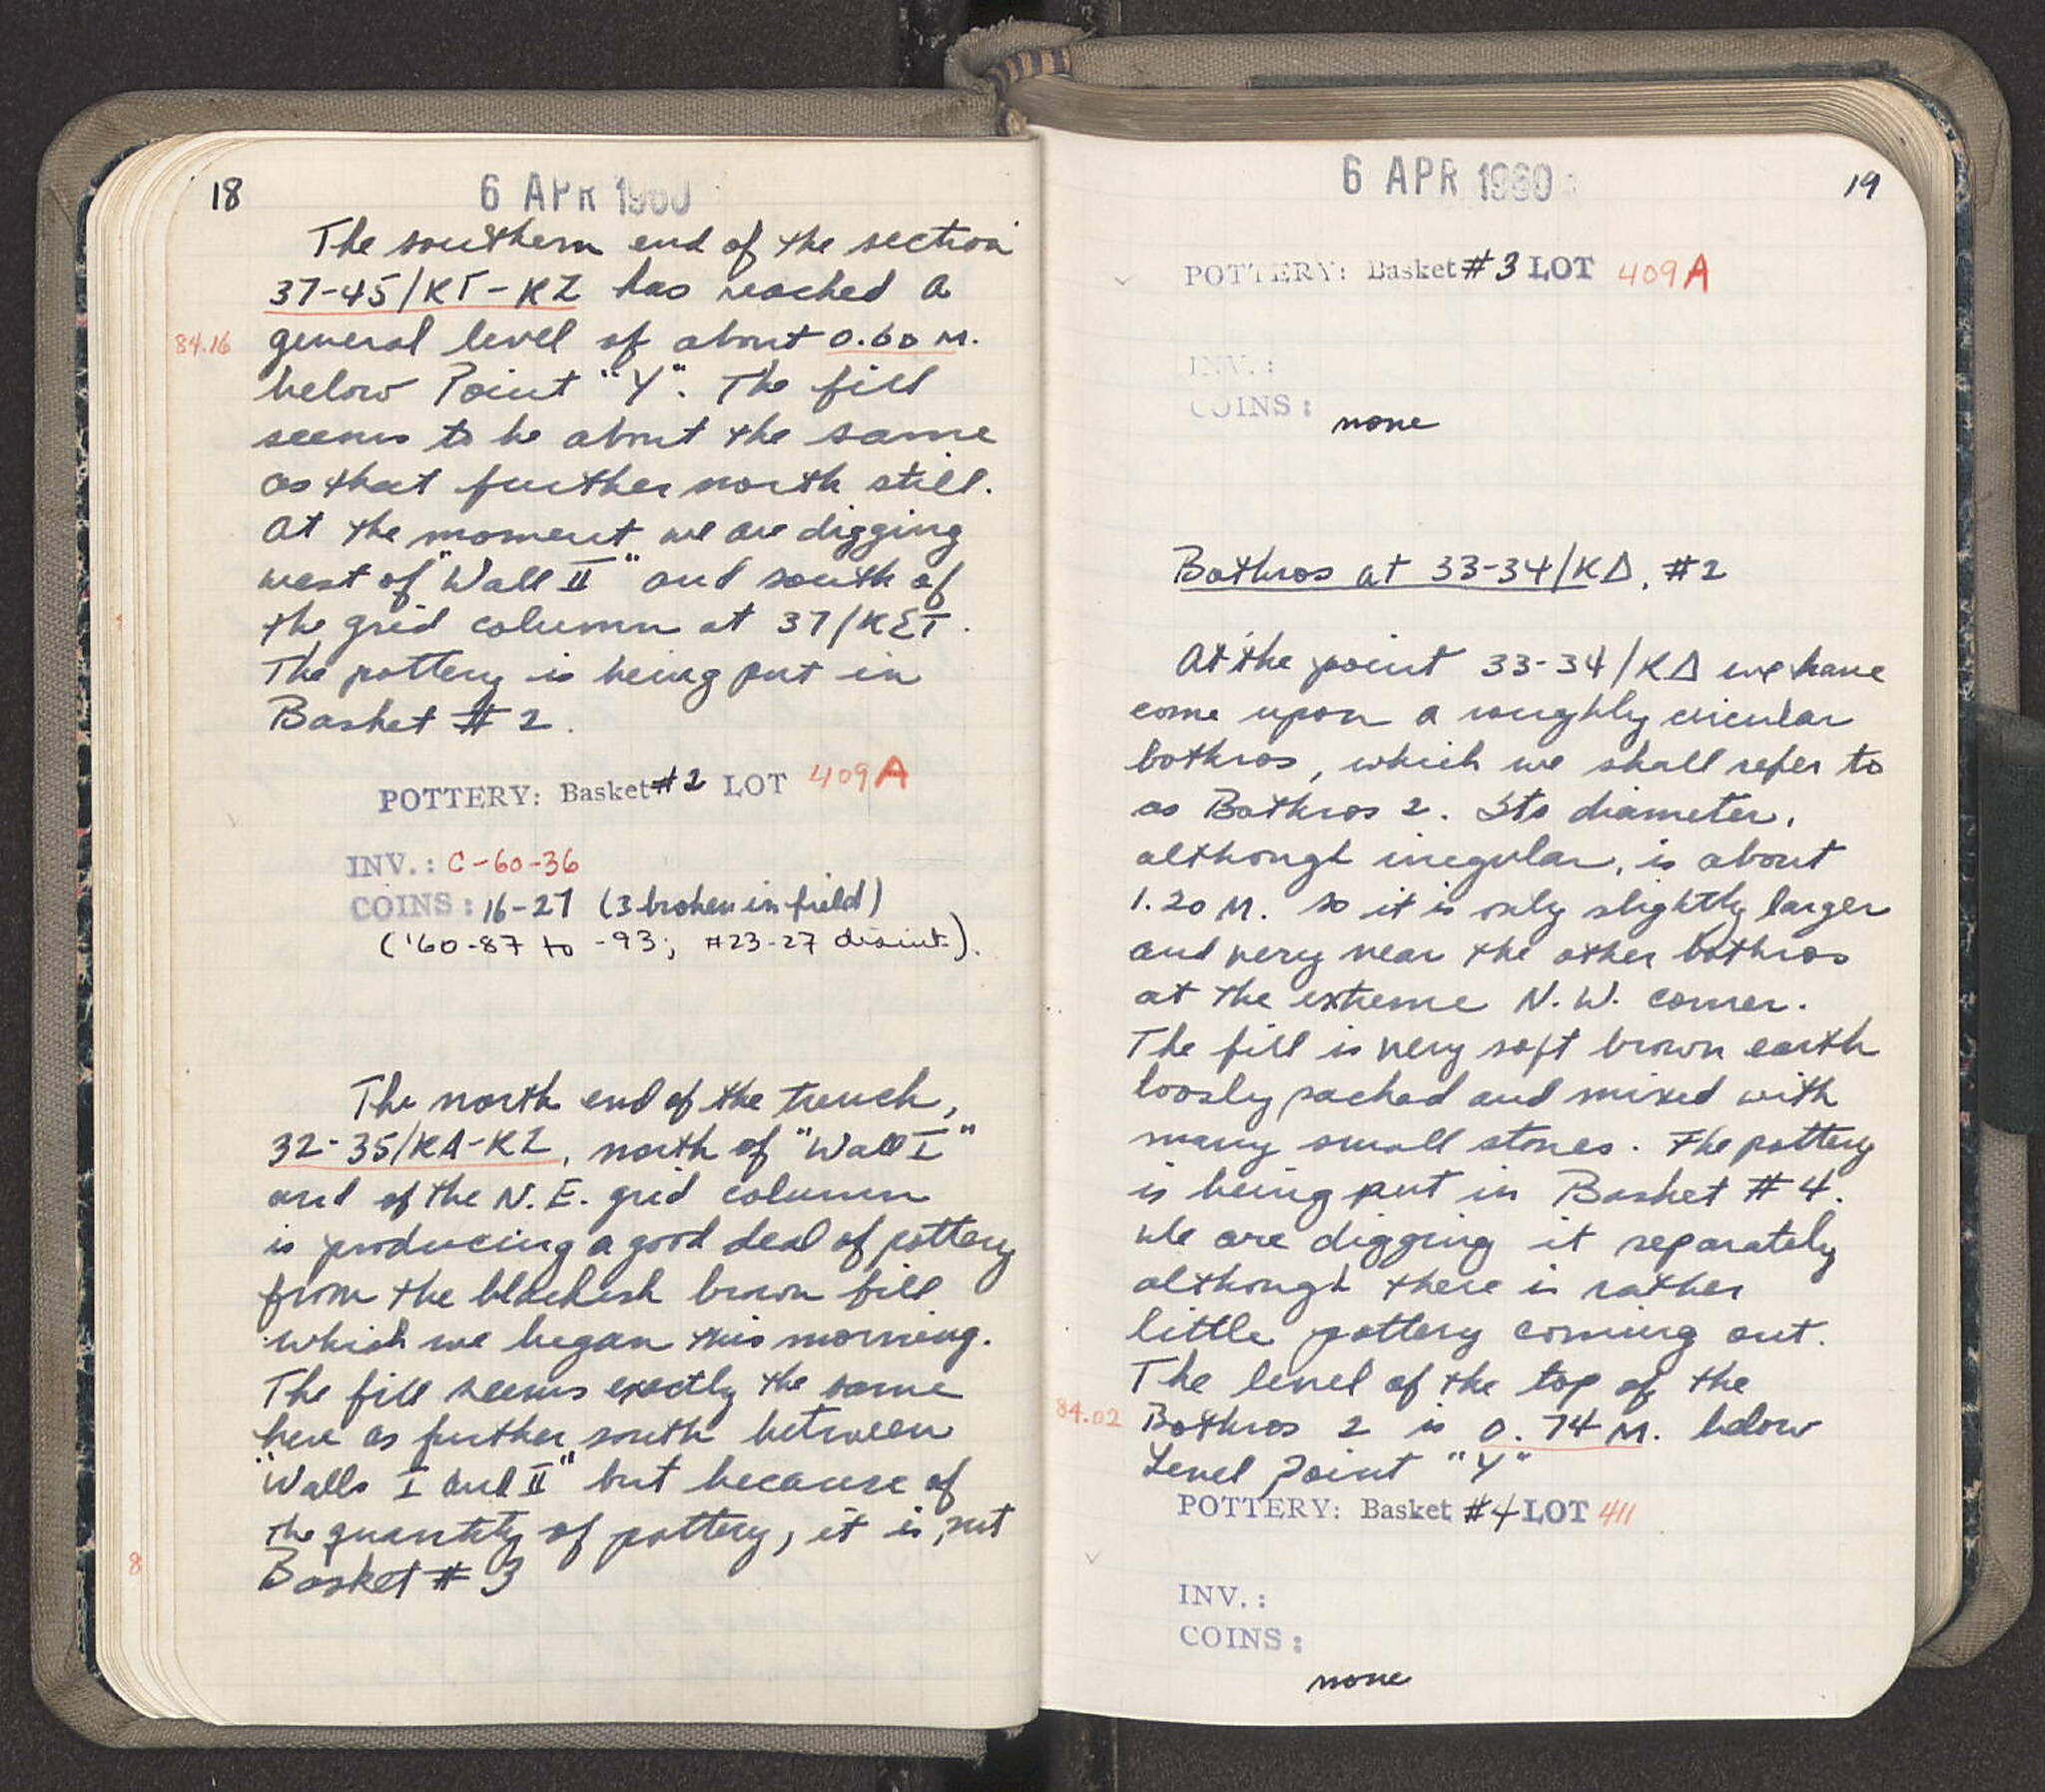 18
6 APR 1960
The southern end of the section
37-45/KΓ-KZ has reached a
84.16 general level of about 0.60 M.
below Point "Y". The fill
seems to be about the same
as that further north still.
At the moment we are digging
west of "Wall II" and south of
the grid column at 37/KΣT.
The pottery is being put in
Basket #2.
POTTERY: Basket #2 LOT 409A
INV.: C-60-36
COINS: 16-27 (3 broken in field)
('60-87 to -93; #23-27 disint.).
The north end of the trench,
32-35/KA-KZ, north of "Wall I"
and of the N.E. grid column
is producing a good deal of pottery
from the blackish brown fill
which we began this morning.
The fill seems exactly the same
here as further south between
"Walls I and II" but because of
the quantity of pottery, it is put
8
Basket #3
6 APR 1960
19
POTTERY: Basket #3 LOT 409A
INV.:
COINS:
none
Bothros at 33-34/KΔ, #2
At the point 33-34/KΔ we have
come upon a roughly circular
bothros, which we shall refer to
as Bothros 2. Its diameter,
although irregular, is about
1.20 M. so it is only slightly larger
and very near the other bothros
at the extreme N.W. corner.
The fill is very soft brown earth
loosly packed and mixed with
many small stones. The pottery
is being put in Basket #4.
We are digging it separately
although there is rather
little pottery coming out.
The level of the top of the
84.02 Bothros 2 is 0.74 M. below
Level Point "Y"
POTTERY: Basket #4 LOT 411
INV.:
COINS:
none